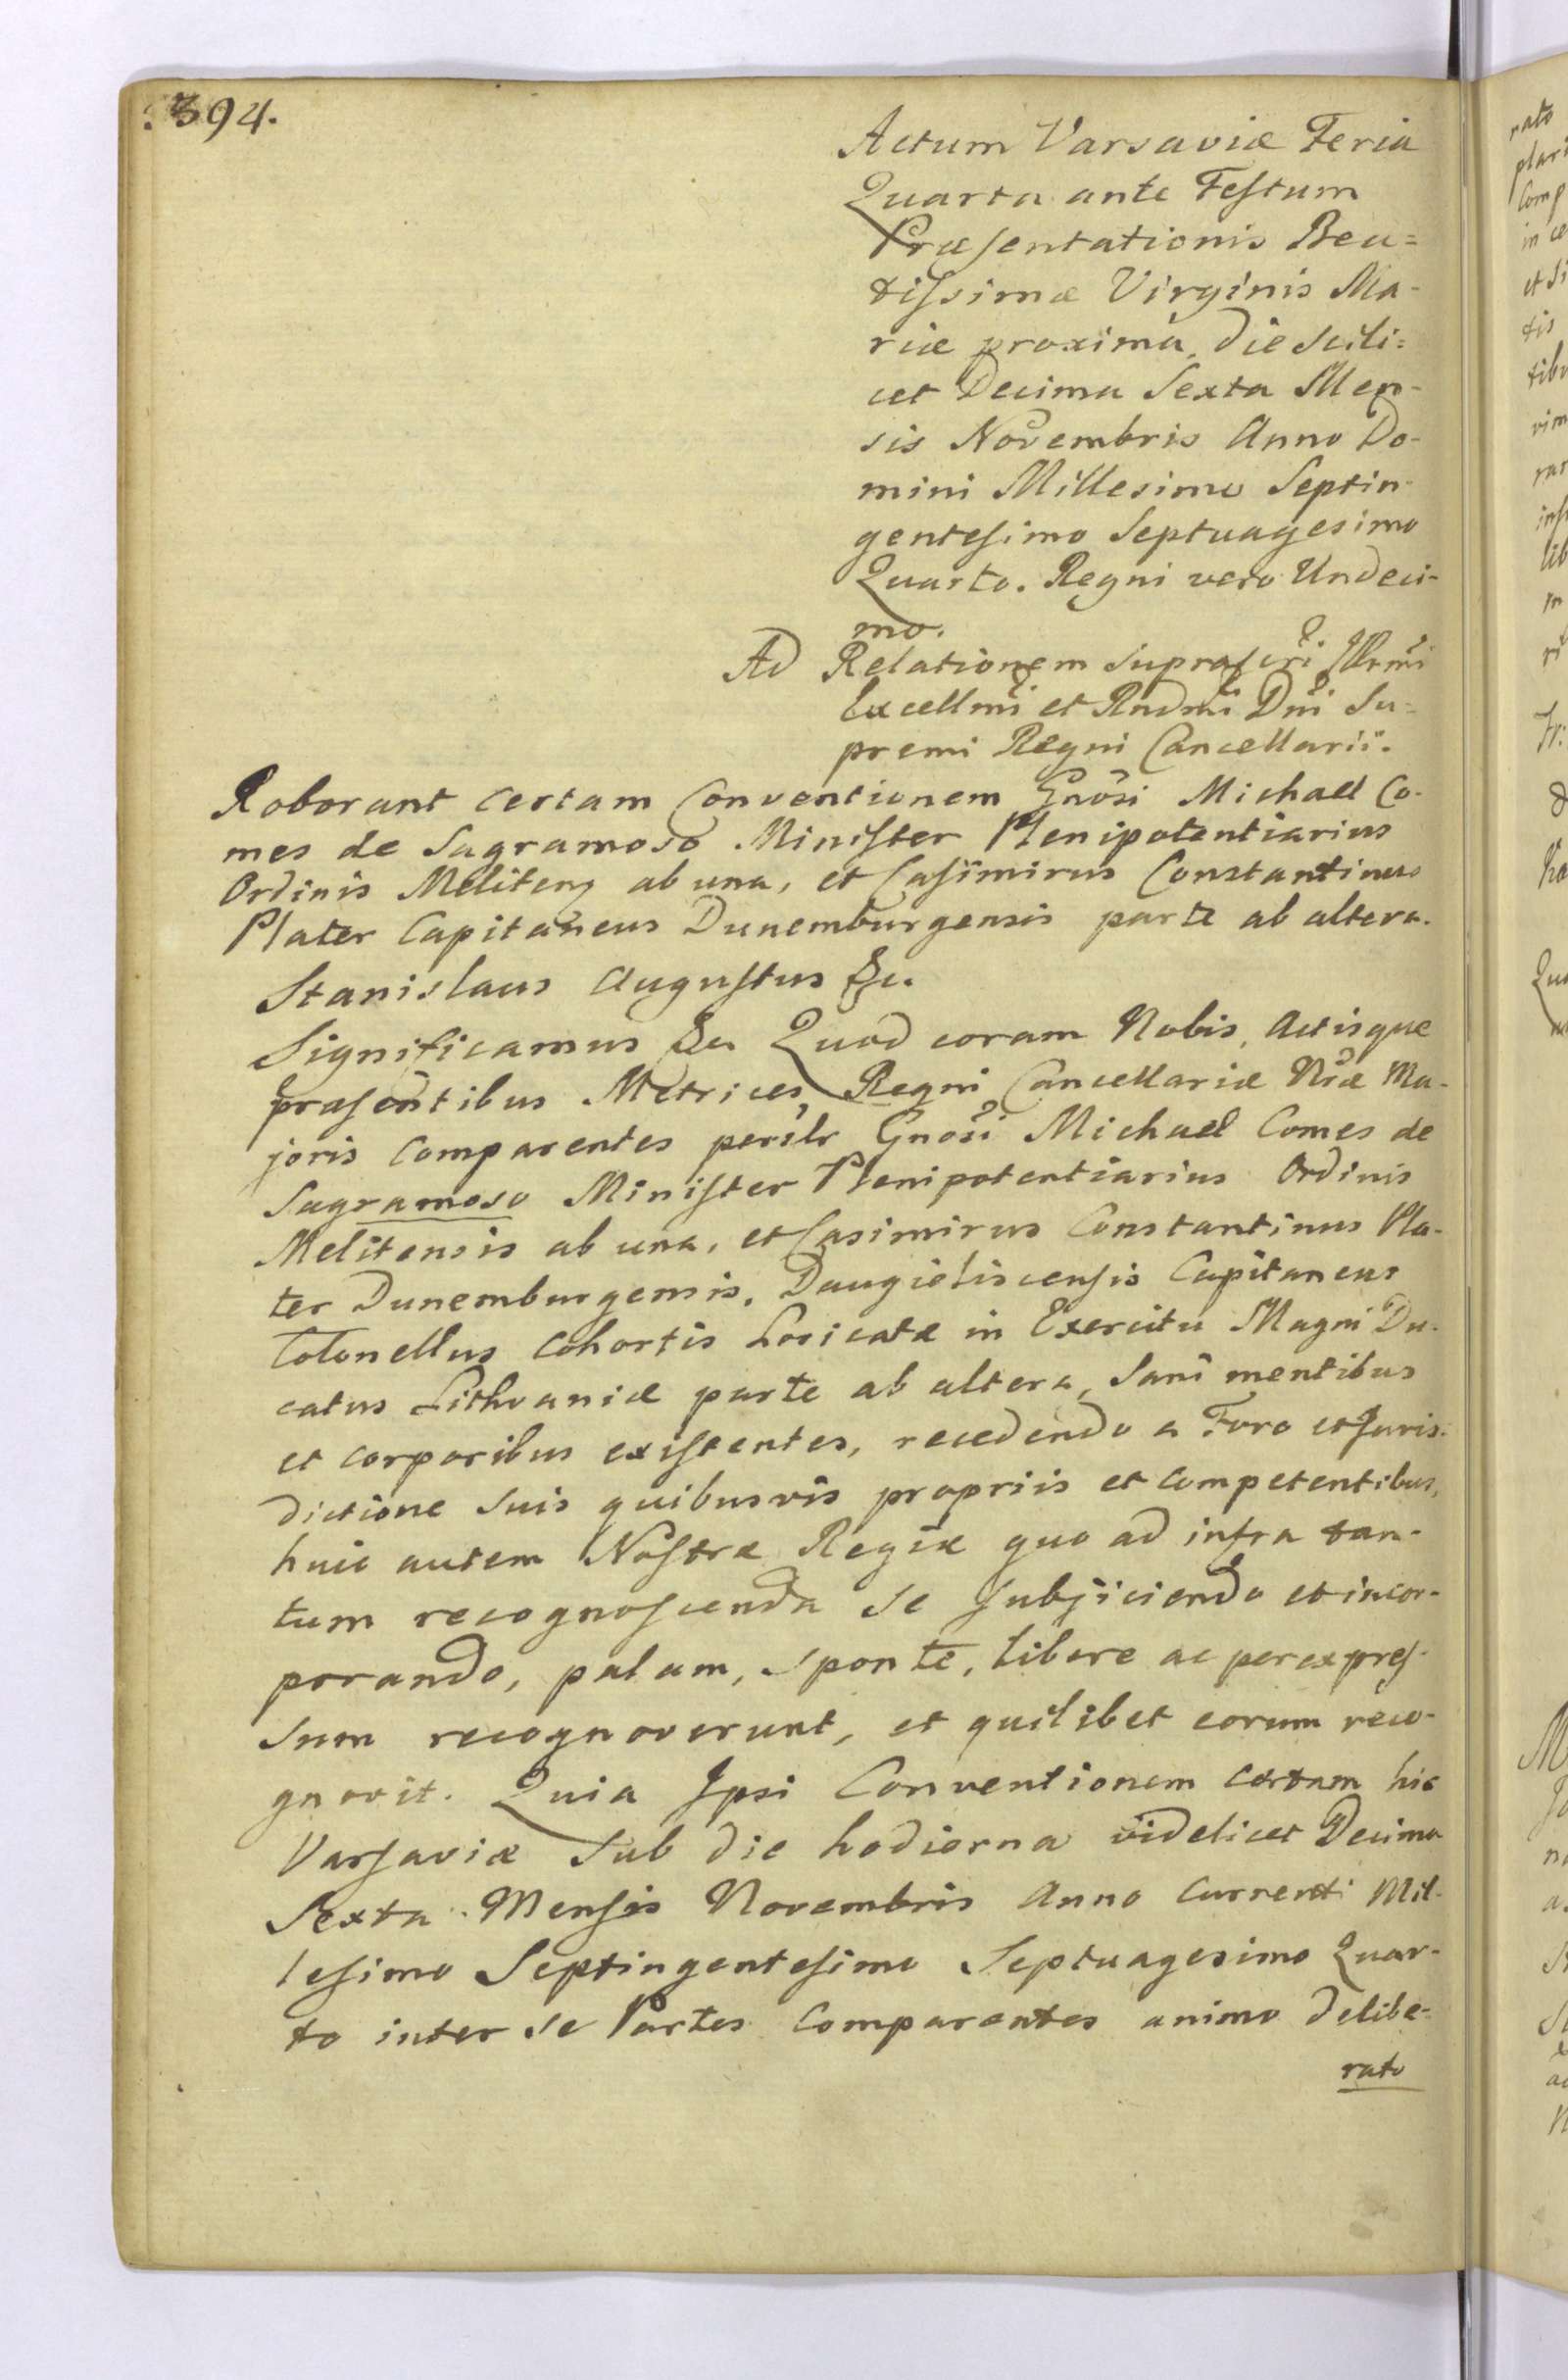 394.
Actum Varsaviæ Feria
Quarta ante Festum
Præsentationis Bea=
tissimæ Virginis Ma-
riæ proxima, die scili=
cet Decima Sexta Men-
sis Novembris Anno Do-
mini Millesimo Septin-
gentesimo Septuagesimo
Quarto. Regni vero Undeci-
mo.
Ad Relationem suprascri Illrmi
Excellmi et Rndmi Dni Su=
premi Regni Cancellarii.
Roborant certam Conventionem Gnosi Michael Co-
mes de Sagramoso Minister Plenipotentiarius
Ordinis Meliten ab una, et Casimirus Constantinus
Plater Capitaneus Dunemburgensis parte ab altera.
Stanislaus Augustus &c.
Significamus &c Quod coram Nobis, Actisque
præsentibus Metrices Regni Cancellariæ Nræ Ma-
joris Comparentes perillr Gnosi Michael Comes de
Sagramoso Minister Plenipotentiarius Ordinis
Melitensis ab una, et Casimirus Constantinus Pla-
ter Dunemburgensis, Daugieliscensis Capitaneus
Colonellus Cohortis Loricatæ in Exercitu Magni Du-
catus Lithvaniæ parte ab altera, Sani mentibus
et corporibus existentes, recedendo a Foro et Juris-
dictione suis quibusvis propriis et competentibus,
huic autem Nostræ Regiæ quo ad infra tan-
tum recognoscenda se subjiciendo et incor-
porando, palam, sponte, libere ac per expres-
sum recognoverunt, et quilibet eorum reco-
gnovit. Quia Ipsi Conventionem certam hic
Varsaviæ Sub die hodierna videlicet Decima
Sexta Mensis Novembris Anno Currenti Mil-
lesimo Septingentesimo Septuagesimo Quar-
to inter se Partes Comparentes animo delibe-
rato